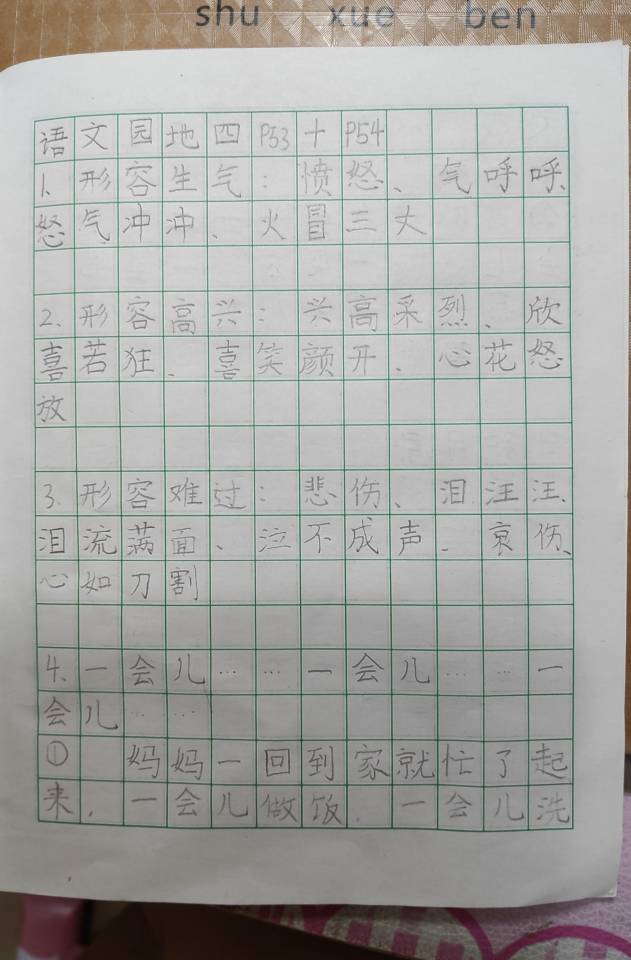 shu xue ben
语文园地四 P53 + P54
1. 形容生气：愤怒、气呼呼、
怒气冲冲、火冒三丈
2. 形容高兴：兴高采烈、欣
喜若狂、喜笑颜开、心花怒
放
3. 形容难过：悲伤、泪汪汪、
泪流满面、泣不成声、哀伤、
心如刀割
4. 一会儿……一会儿……一
会儿……
① 妈妈一回到家就忙了起
来，一会儿做饭，一会儿洗